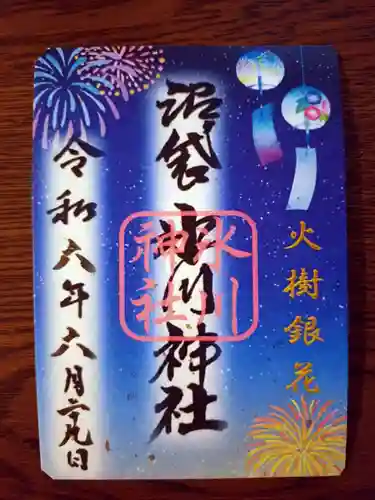 火樹銀花
沼袋氷川神社
氷川
神社
令和六年六月二十九日